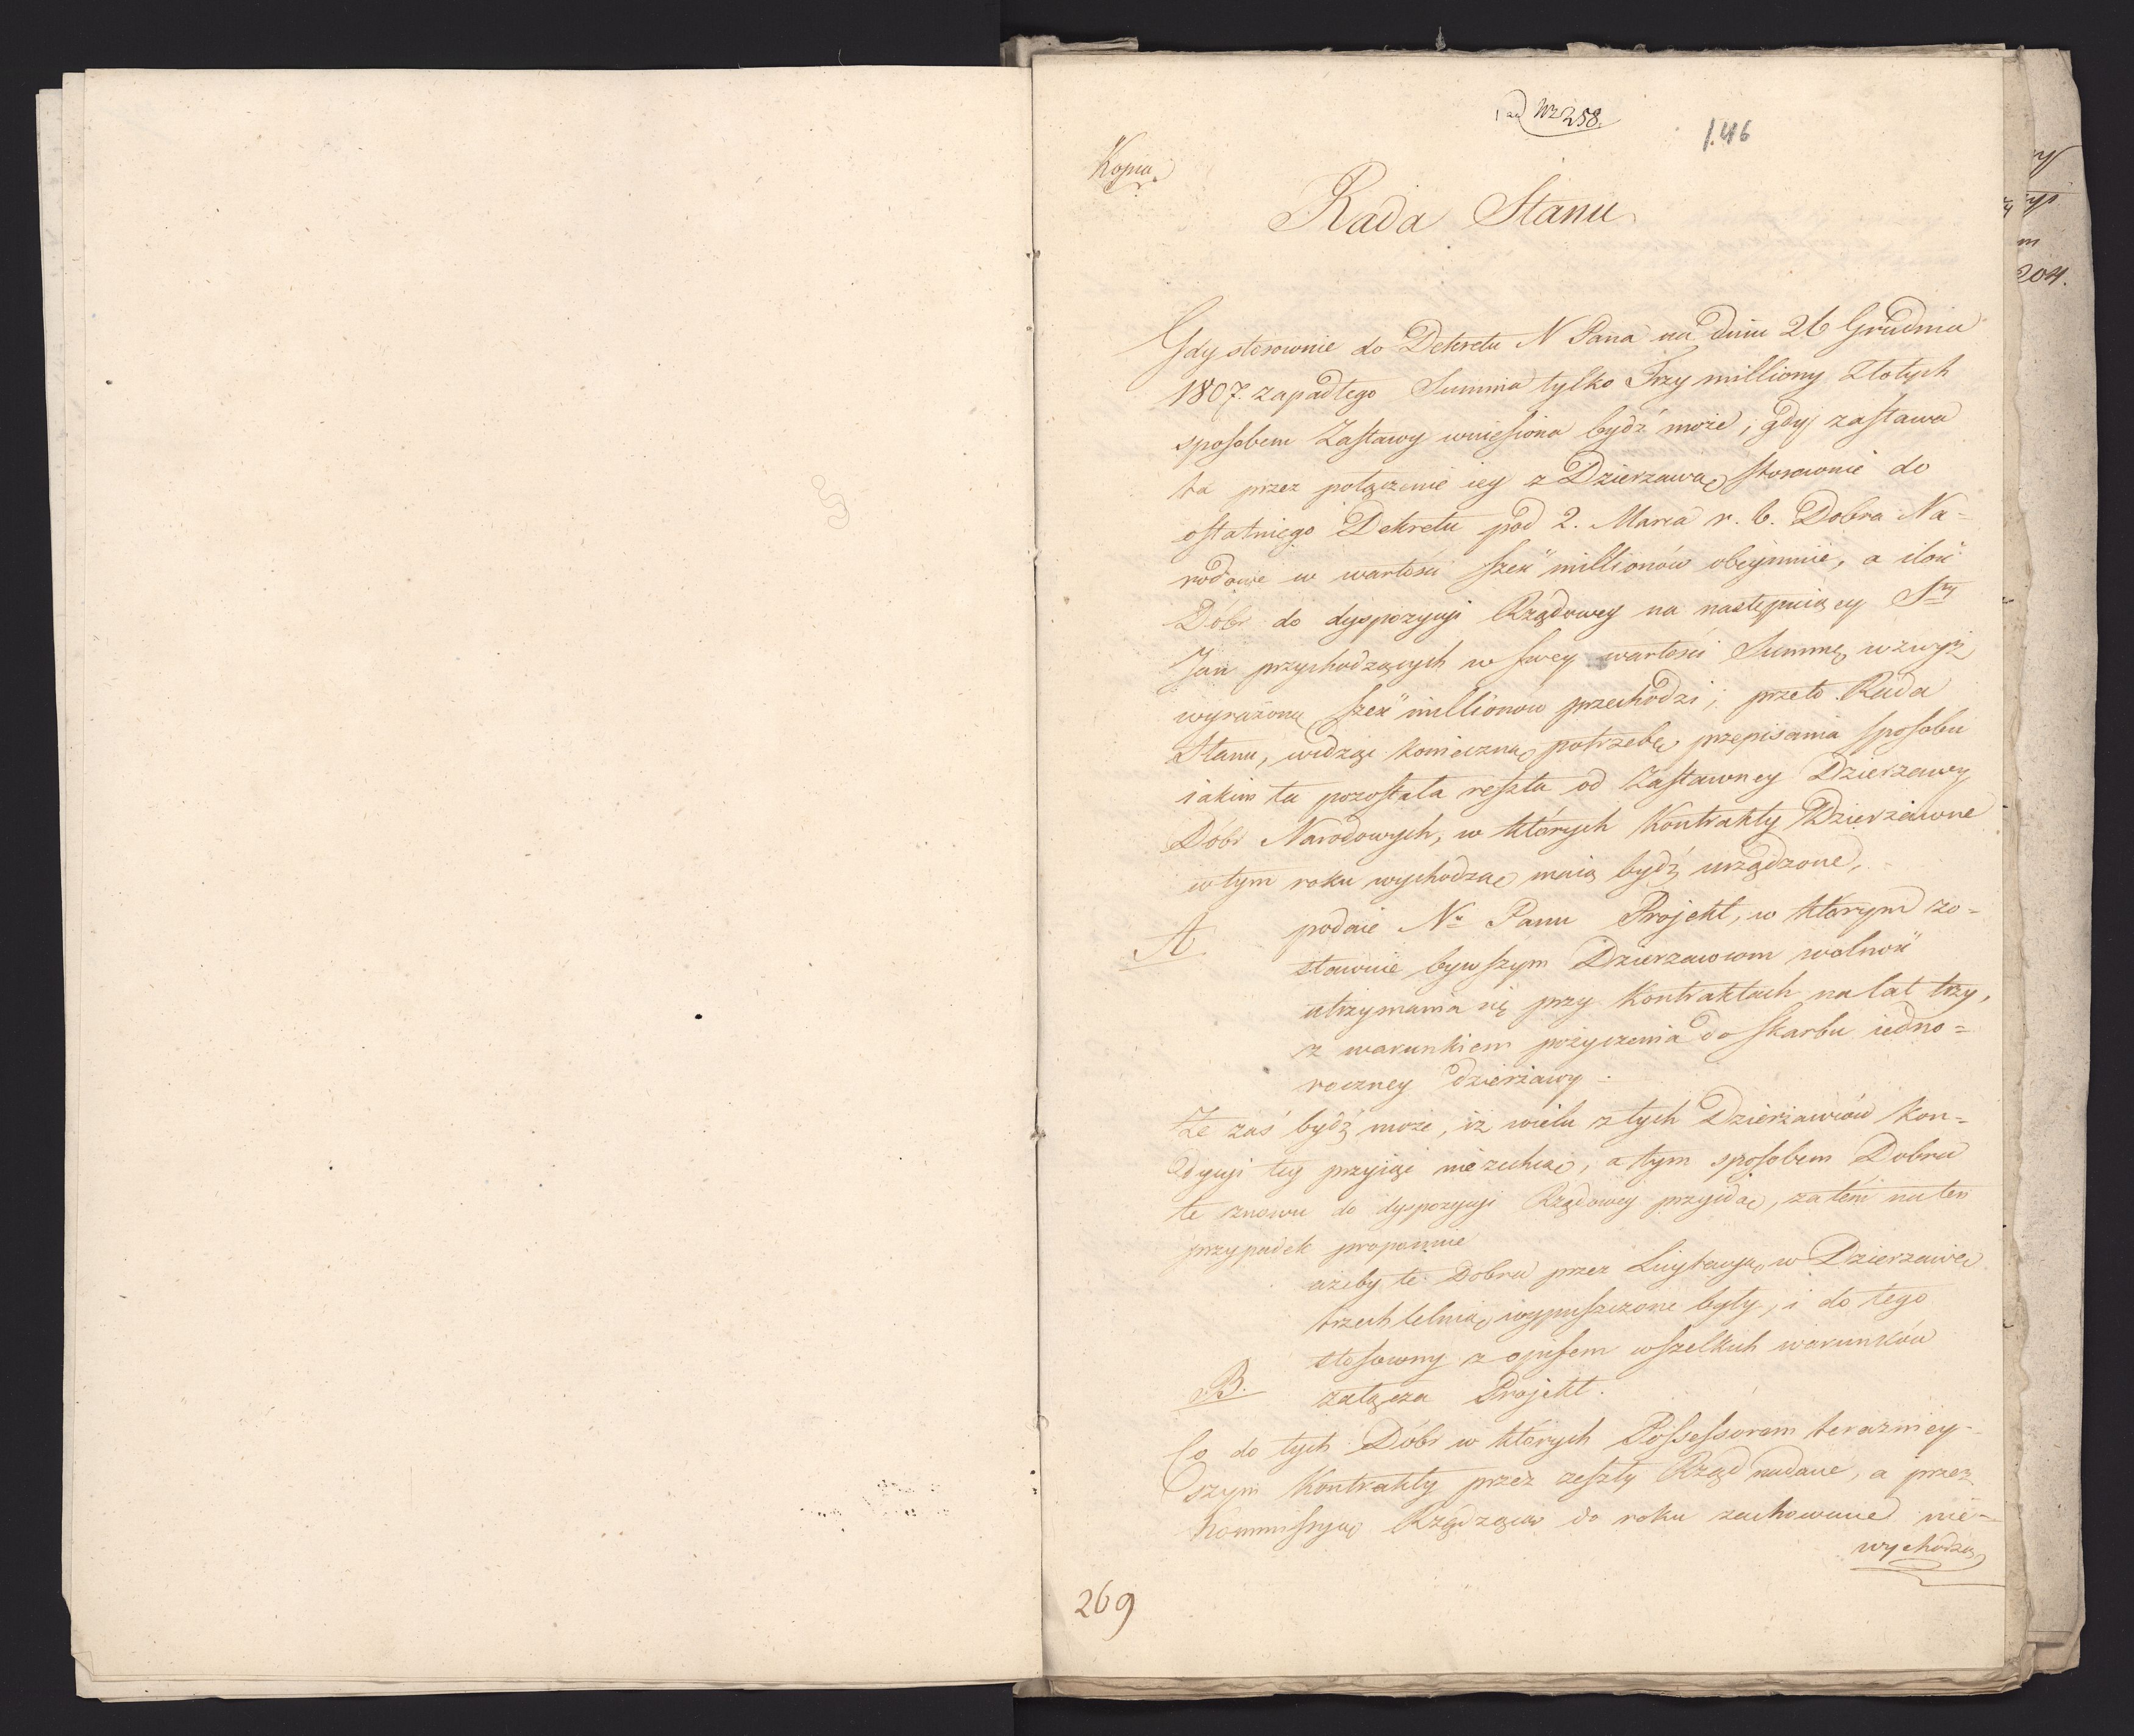 ad Nr 258.
146
Kopia.
Rada Stanu
Gdy stosownie do Dekretu N Pana na dniu 26 Grudnia
1807. zapadłego Summa tylko Trzy milliony Złotych
sposobem Zastawy wniesiona bydź może; gdy zastawa
ta przez połączenie iey z Dzierzawą stosownie do
ostatniego Dekretu pod 2. Marca r. b. Dobra Na=
rodowe w wartości sześć millionów obeymuie, a ilość
Dóbr do dyspozycyi Rządowey na następuiący Sty
Jan przychodzących w swey wartości Summę wzwyż
wyrażoną sześć millionow przechodzi; przeto Rada
Stanu, widząc konieczną potrzebę przepisania sposobu
iakim ta pozostała reszta od Zastawney Dzierzawy
Dóbr Narodowych, w których Kontrakty Dzierżawne
w tym roku wychodzą maią bydź urządzone,
A podaie Nu Panu Projekt, w którym zo=
stawuie bywszym Dzierzawcom wolność
utrzymania się przy Kontraktach na lat trzy,
z warunkiem pożyczenia do Skarbu iedno=
roczney dzierżawy.
Że zaś bydź może, iż wielu z tych Dzierżawców kon=
dycyi tey przyiąć nie zechcą, a tym sposobem Dobra
te znowu do dyspozycyi Rządowey przyidą, zatém na ten
przypadek proponuie
ażeby te Dobra przez Licytacyą w Dzierzawę
trzechletnią wypuszczone były, i do tego
stosowny z opisem wszelkich warunków
B. załącza Projekt.
Co do tych Dóbr w których Possessorom terazniey=
szym Kontrakty przez zeszły Rząd nadane, a przez
Kommissyą Rządzącą do roku zachowane nie=
wychodzą
269
204.